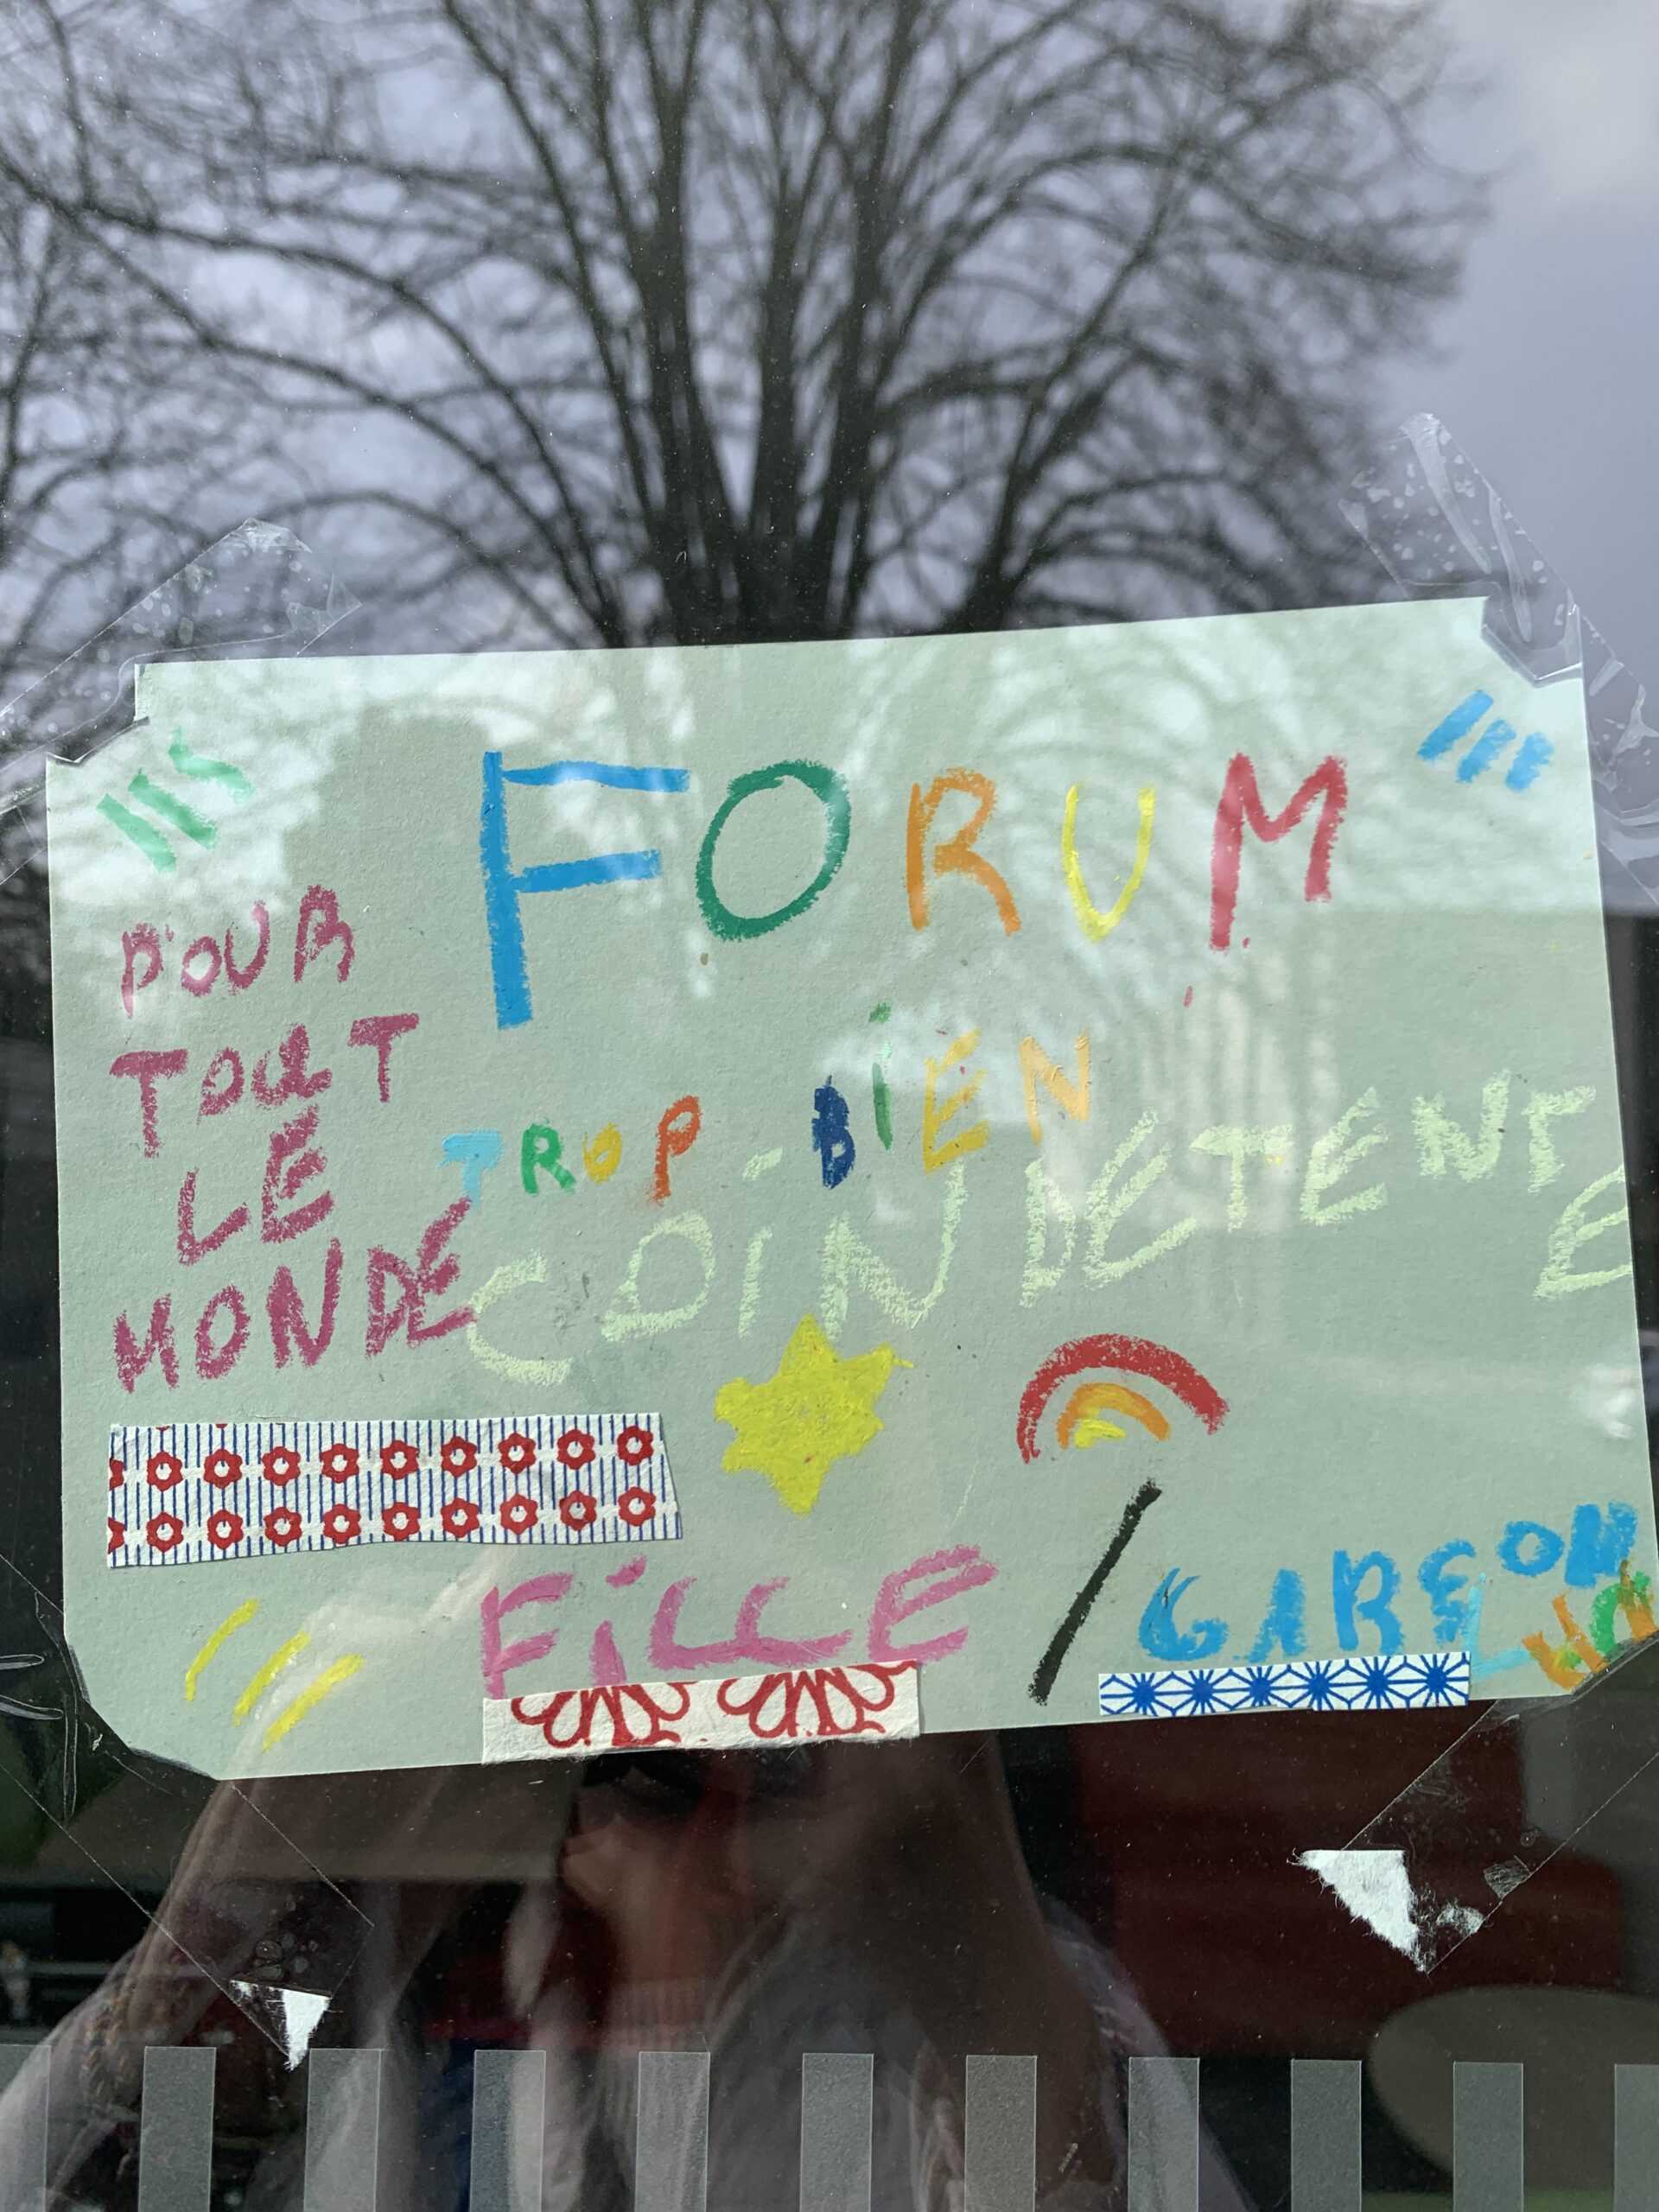 FORUM
POUR
TOUT
LE
MONDE
TROP BiEN
COiN DETENTE
FiLLE / GARSON